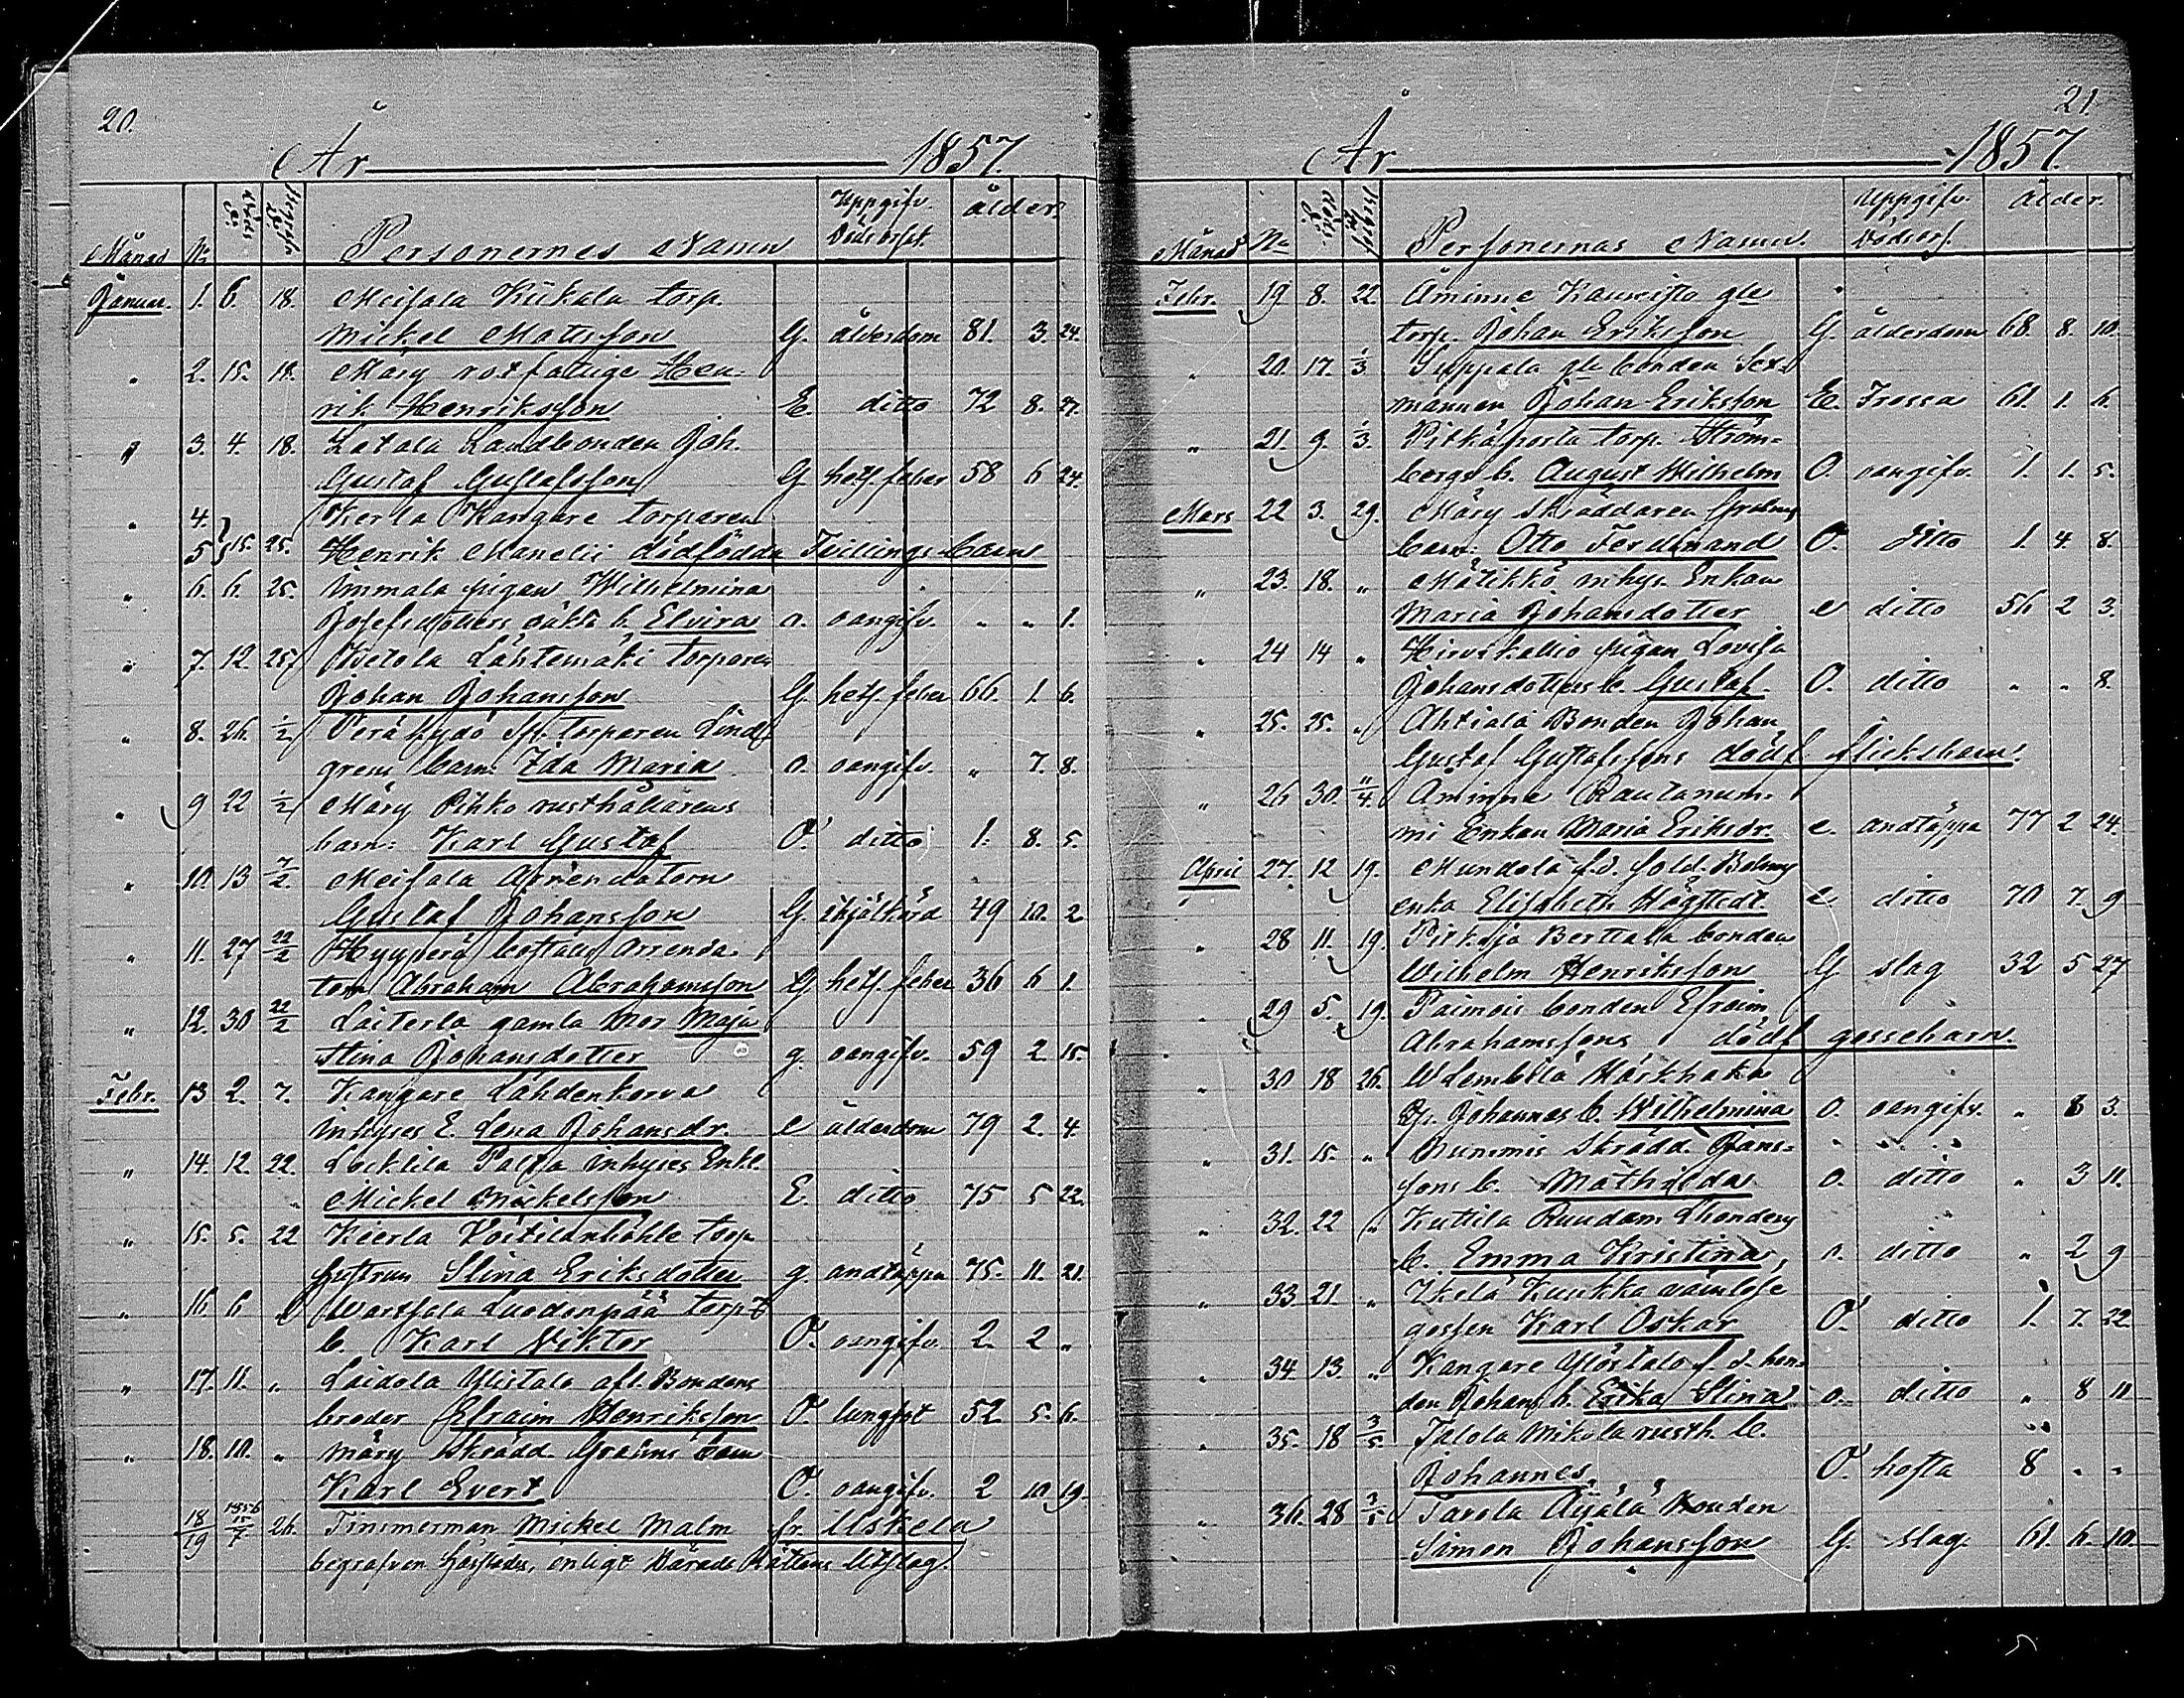 20.
År 1857.
Månad No Döds d. Begrafn. d. Personernes Namn Uppgifv. Dödsorsak. ålder.
Januar. 1. 6. 18. Meisala Kükala torp.
Mickel Mattsson G. ålderdom 81. 3. 24.
" 2. 15. 18. Märy rotfattige Hen-
rik Henriksson E. ditto 72 8. 27.
" 3. 4. 18. Latala Landbonden Joh.
Gustaf Gustafsson G. hets. feber 58 6 24.
" 4. Kerla Kangare torparen
5 15. 25. Henrik Manelii dödfödda Tvillings barn
" 6. 6. 25. Immala pigan Wilhelmina
Josefsdotters oäkta b. Elvira o. oangifv. " " 1.
" 7. 12 25 Ketola Lähtemäki torparen
Johan Johansson G. hets. feber 66. 1. 6.
" 8. 26. 1/2 Perähydö torparen Lind-
grens barn Ida Maria o. oangifv. " 7. 8.
" 9 22 1/2 Märy Pihko rusthållarens
barn: Karl Gustaf O. ditto 1. 8. 5.
" 10. 13 7/2. Meisala Arrendatorn
Gustaf Johansson G. ihjälkörd 49 10. 2
" 11. 27 22/2 Hyyperä boställs Arrenda-
torn Abraham Abrahamsson G. hets. feber 36 6 1.
" 12. 30 22/2 Laiterla gamla Mor Maja
Stina Johansdotter g. oangifv. 59 2 15.
Febr. 13 2. 7. Kangare Lähdenkorva
inhyses E. Lena Johansdr. e ålderdom 79 2. 4.
" 14. 12. 22. Palssa inhyses Enkl.
Mickel Mickelsson E. ditto 75 5 22.
" 15. 5. 22 Kierla Voitilankähle torp.
hustrun Stina Eriksdotter g. andtäppa 75. 11. 21.
" 16 6 " Wartsala Luodonpää torp.
b. Karl Viktor O. oangifv. 2. 2 "
" 17. 11. " Laidola Ylistalo afl. Bondens
broder Efraim Henriksson O. lungsot 52 5. 6.
" 18. 10. " Märy Skrädd. barn
Karl Evert O. oangifv. 2 10 19.
18/19 1856 15/7 26. Timmerman Mickel Malm fr. Uskela
begrafven härstädes, enligt Härads Rättens Utslag.
21.
År 1857.
Månad No Döds d. Begrafn. d. Personernas Namn. Uppgifv. Dödsors. Ålder.
Febr. 19 8. 22 Åminne Kauvisto gle
torp. Johan Eriksson G. ålderdom 68. 8. 10.
" 20. 17. 1/3 Suppala gle bonden Sex-
mannen Johan Eriksson E. Frossa 61. 1. 6.
" 21. 9. 1/3. Pitkäporta torp. Ström-
bergs b. August Wilhelm O. oangifv. 1. 1. 5.
Mars 22 3. 29. Märy Skräddaren
barn: Otto Ferdinand O. ditto 1. 4. 8.
" 23. 18. " Mätikkö inhys. Enkan
Maria Johansdotter e ditto 56 2 3.
" 24 14 " Hirvikallio pigan Lovisa
Johansdotters b. Gustaf O. ditto " " 8.
" 25. 25. " Ahtiala Bonden Johan
Gustaf Gustafssons dödf. flicksbarn.
" 26 30. 11/4. Åminne Rautanum-
mi Enkan Maria Eriksdr. e. andtäppa 77 2 24.
April 27. 12 19. Mundola f.d. Sold.
enka Elisabeth Högstedt e ditto 70 7. 9
" 28 11. 19. Pirkjo Berttala bonden
Wilhelm Henriksson G slag 32 5 27
" 29 5. 19. Paimois bonden Efraim
Abrahamssons dödf gossebarn.
" 30 18 26. Wlembilä Harkhaka
Johannes b. Wilhelmina o. oangifv. " 8 3.
" 31. 15. " Nummis Skrädd. Jäns-
sons b. Mathilda o. ditto " 3 11.
" 32. 22 " Kuttila
b. Emma Kristina, o. ditto " 2 9
" 33. 21. " Ikelä Kuukka värnlöse
gossen Karl Oskar O. ditto 1. 7. 22
" 34. 13. " Kangare Ylöstalo f.d. bon-
den Johans b. Erika Stina o. ditto " 8 11
" 35. 18 3/5. Talola Mikola rusth. b.
Johannes. O. hosta 8 " "
" 36. 28 3/5 Tavola Äijälä Bonden
Simon Johansson G. slag. 61. 6. 10.